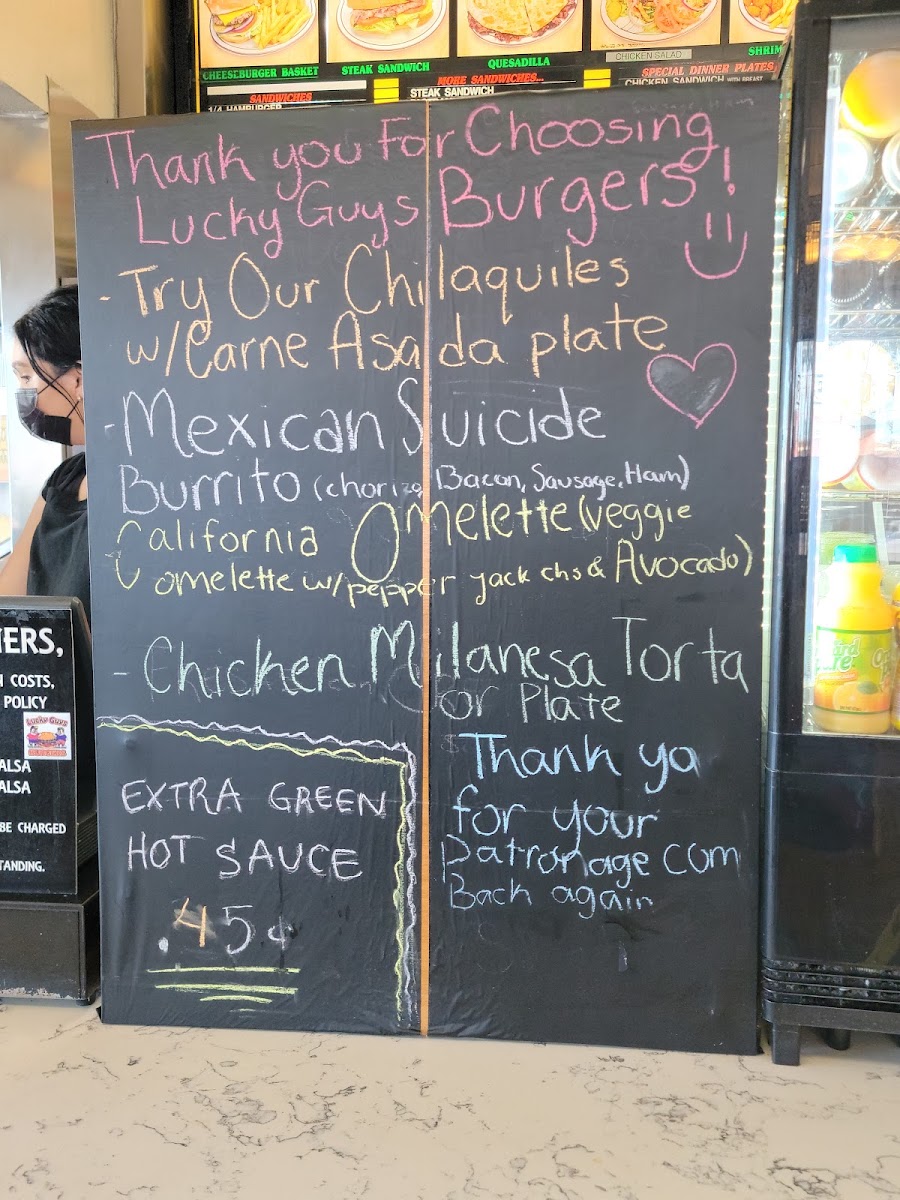 CHEESEBURGER BASKET
STEAK SANDWICH
QUESADILLA
CHICKEN SALAD
SHRIM
SANDWICHES
MORE SANDWICHES...
STEAK SANDWICH
SPECIAL DINNER PLATES
CHICKEN SANDWICH WITH BREAST
1/4 HAMBURGER
Thank you For Choosing
Lucky Guys Burgers!
- Try Our Chilaquiles
w/Carne Asada plate
- Mexican Suicide
Burrito (chorizo, Bacon, Sausage, Ham)
California Omelette (veggie
omelette w/pepper jack chs & Avocado)
- Chicken Milanesa Torta
or Plate
EXTRA GREEN
HOT SAUCE
.45¢
Thank ya
for your
Patronage com
Back again
ERS,
COSTS,
POLICY
LUCKY GUYS
ALSA
ALSA
BE CHARGED
TANDING.